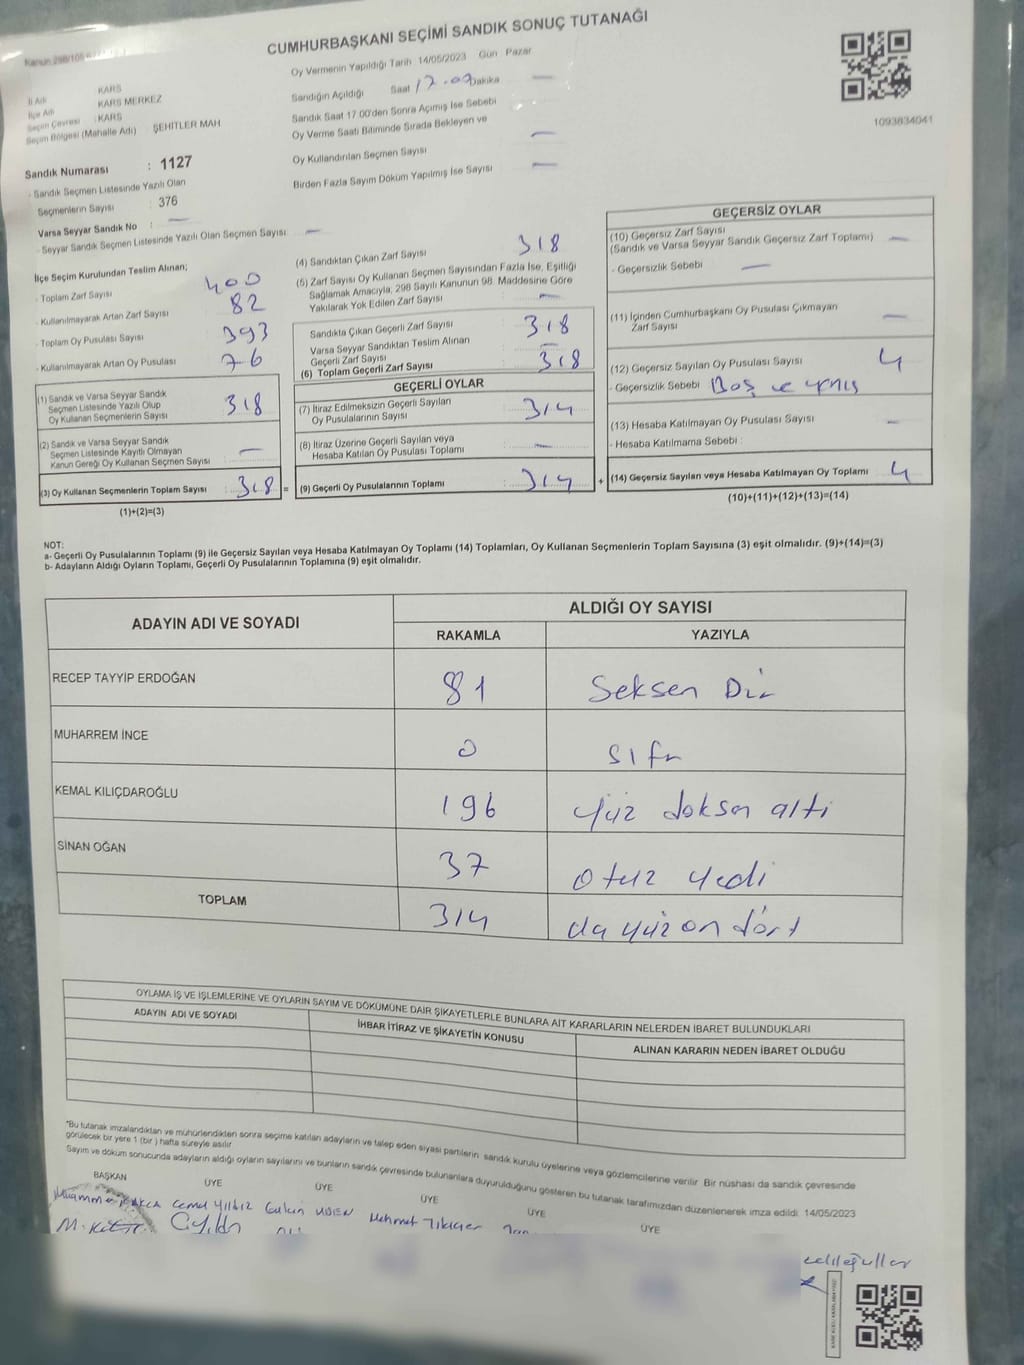 CUMHURBAŞKANI SEÇİMİ SANDIK SONUÇ TUTANAĞI
Oy Vermenin Yapıldığı Tarih 14/05/2023 Gün Pazar
İl Adı KARS
İlçe Adı KARS MERKEZ
Seçim Çevresi : KARS
Seçim Bölgesi (Mahalle Adı) ŞEHİTLER MAH
Sandık Numarası : 1127
- Sandık Seçmen Listesinde Yazılı Olan
Seçmenlerin Sayısı : 376
Varsa Seyyar Sandık No : —
- Seyyar Sandık Seçmen Listesinde Yazılı Olan Seçmen Sayısı : —
Sandığın Açıldığı Saat 17.00 Dakika —
Sandık Saat 17.00'den Sonra Açımış İse Sebebi
Oy Verme Saati Bitiminde Sırada Bekleyen ve
Oy Kullandırılan Seçmen Sayısı —
Birden Fazla Sayım Döküm Yapılmış İse Sayısı —
1093834041
İlçe Seçim Kurulundan Teslim Alınan;
- Toplam Zarf Sayısı 400
- Kullanılmayarak Artan Zarf Sayısı 82
- Toplam Oy Pusulası Sayısı 393
- Kullanılmayarak Artan Oy Pusulası 76
(1) Sandık ve Varsa Seyyar Sandık
Seçmen Listesinde Yazılı Olup
Oy Kullanan Seçmenlerin Sayısı : 318
(2) Sandık ve Varsa Seyyar Sandık
Seçmen Listesinde Kayıtlı Olmayan
Kanun Gereği Oy Kullanan Seçmen Sayısı : —
(3) Oy Kullanan Seçmenlerin Toplam Sayısı : 318 =
(1)+(2)=(3)
(4) Sandıktan Çıkan Zarf Sayısı 318
(5) Zarf Sayısı Oy Kullanan Seçmen Sayısından Fazla İse, Eşitliği
Sağlamak Amacıyla, 298 Sayılı Kanunun 98. Maddesine Göre
Yakılarak Yok Edilen Zarf Sayısı —
Sandıkta Çıkan Geçerli Zarf Sayısı 318
Varsa Seyyar Sandıktan Teslim Alınan
Geçerli Zarf Sayısı —
(6) Toplam Geçerli Zarf Sayısı 318
GEÇERLİ OYLAR
(7) İtiraz Edilmeksizin Geçerli Sayılan
Oy Pusulalarının Sayısı : 314
(8) İtiraz Üzerine Geçerli Sayılan veya
Hesaba Katılan Oy Pusulası Toplamı : —
(9) Geçerli Oy Pusulalarının Toplamı : 314 +
GEÇERSİZ OYLAR
(10) Geçersiz Zarf Sayısı
(Sandık ve Varsa Seyyar Sandık Geçersiz Zarf Toplamı) —
- Geçersizlik Sebebi : —
(11) İçinden Cumhurbaşkanı Oy Pusulası Çıkmayan
Zarf Sayısı —
(12) Geçersiz Sayılan Oy Pusulası Sayısı 4
- Geçersizlik Sebebi : Boş ve
(13) Hesaba Katılmayan Oy Pusulası Sayısı —
- Hesaba Katılmama Sebebi :
(14) Geçersiz Sayılan veya Hesaba Katılmayan Oy Toplamı 4
(10)+(11)+(12)+(13)=(14)
NOT:
a- Geçerli Oy Pusulalarının Toplamı (9) ile Geçersiz Sayılan veya Hesaba Katılmayan Oy Toplamı (14) Toplamları, Oy Kullanan Seçmenlerin Toplam Sayısına (3) eşit olmalıdır. (9)+(14)=(3)
b- Adayların Aldığı Oyların Toplamı, Geçerli Oy Pusulalarının Toplamına (9) eşit olmalıdır.
ADAYIN ADI VE SOYADI ALDIĞI OY SAYISI
RAKAMLA YAZIYLA
RECEP TAYYİP ERDOĞAN 81 Seksen Bir
MUHARREM İNCE 0 sıfır
KEMAL KILIÇDAROĞLU 196 yüz doksan altı
SİNAN OĞAN 37 otuz yedi
TOPLAM 314 üç yüz on dört
OYLAMA İŞ VE İŞLEMLERİNE VE OYLARIN SAYIM VE DÖKÜMÜNE DAİR ŞİKAYETLERLE BUNLARA AİT KARARLARIN NELERDEN İBARET BULUNDUKLARI
ADAYIN ADI VE SOYADI İHBAR İTİRAZ VE ŞİKAYETİN KONUSU ALINAN KARARIN NEDEN İBARET OLDUĞU
"Bu tutanak imzalandıktan ve mühürlendikten sonra seçime katılan adayların ve talep eden siyasi partilerin sandık kurulu üyelerine veya gözlemcilerine verilir. Bir nüshası da sandık çevresinde
görülecek bir yere 1 (bir ) hafta süreyle asılır
Sayım ve döküm sonucunda adayların aldığı oyların sayılarını ve bunların sandık çevresinde bulunanlara duyurulduğunu gösteren bu tutanak tarafımızdan düzenlenerek imza edildi 14/05/2023
BAŞKAN ÜYE ÜYE ÜYE ÜYE ÜYE
Cemal Yıldız Mehmet